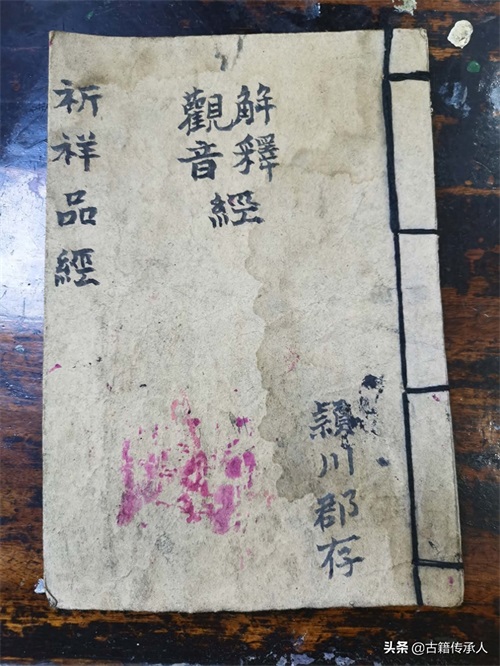 解釋
觀音
經
祈祥品經
頴川郡存
头条 @古籍传承人